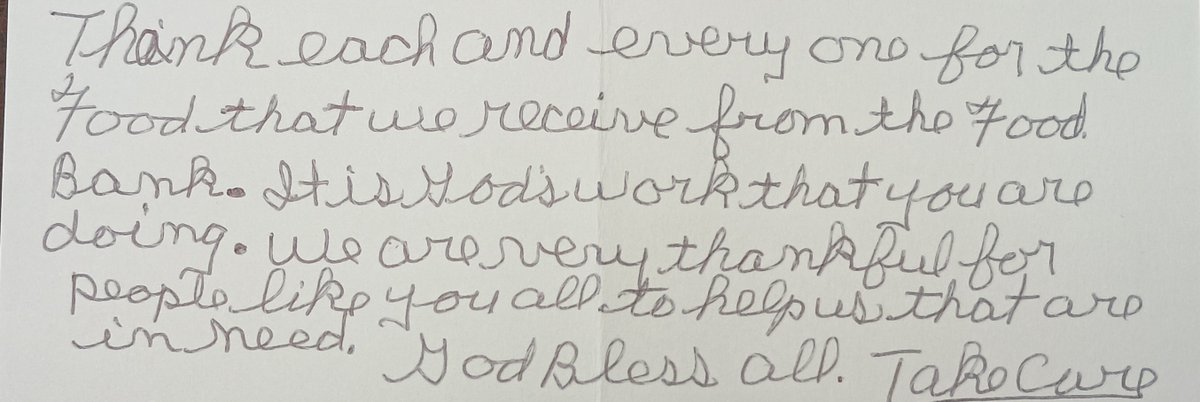 Thank each and every one for the
Food that we receive from the Food
Bank. It is God's work that you are
doing. We are very thankful for
people like you all to help us that are
in need.
God Bless all. Take Care